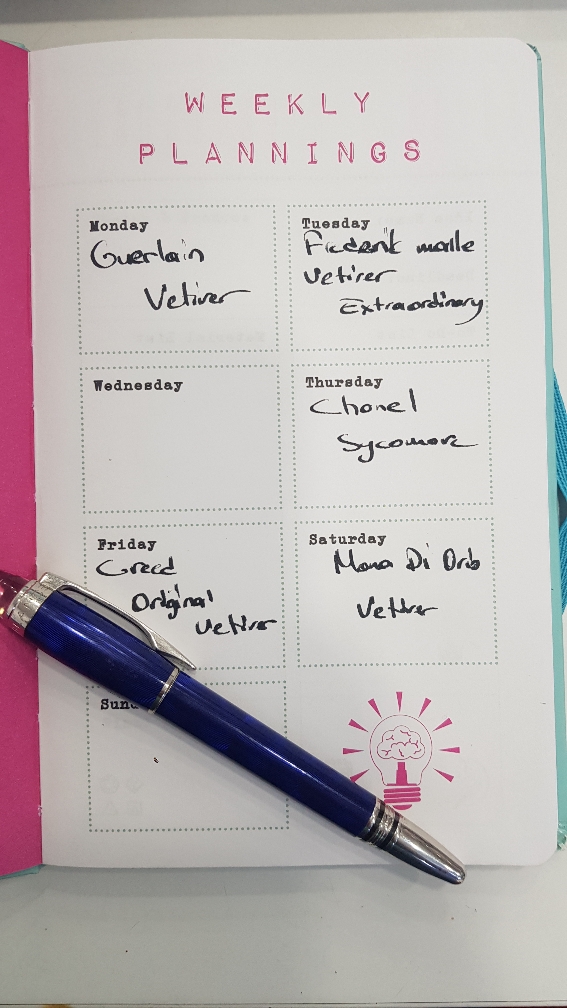 WEEKLY
PLANNINGS
Monday
Guerlain
Vetiver
Tuesday
Frederik malle
Vetiver
Extraordinary
Wednesday
Thursday
Chanel
Sycomore
Friday
Creed
Original
Vetiver
Saturday
Mona Di Orio
Vetiver
Sund